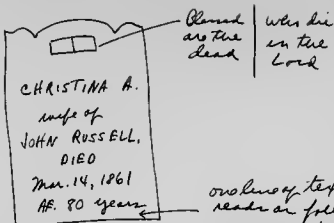 Blessed are the dead | who die in the Lord
CHRISTINA A.
wife of
JOHN RUSSELL,
DIED
Mar. 14, 1861
AE. 80 years
one line of text
reads as